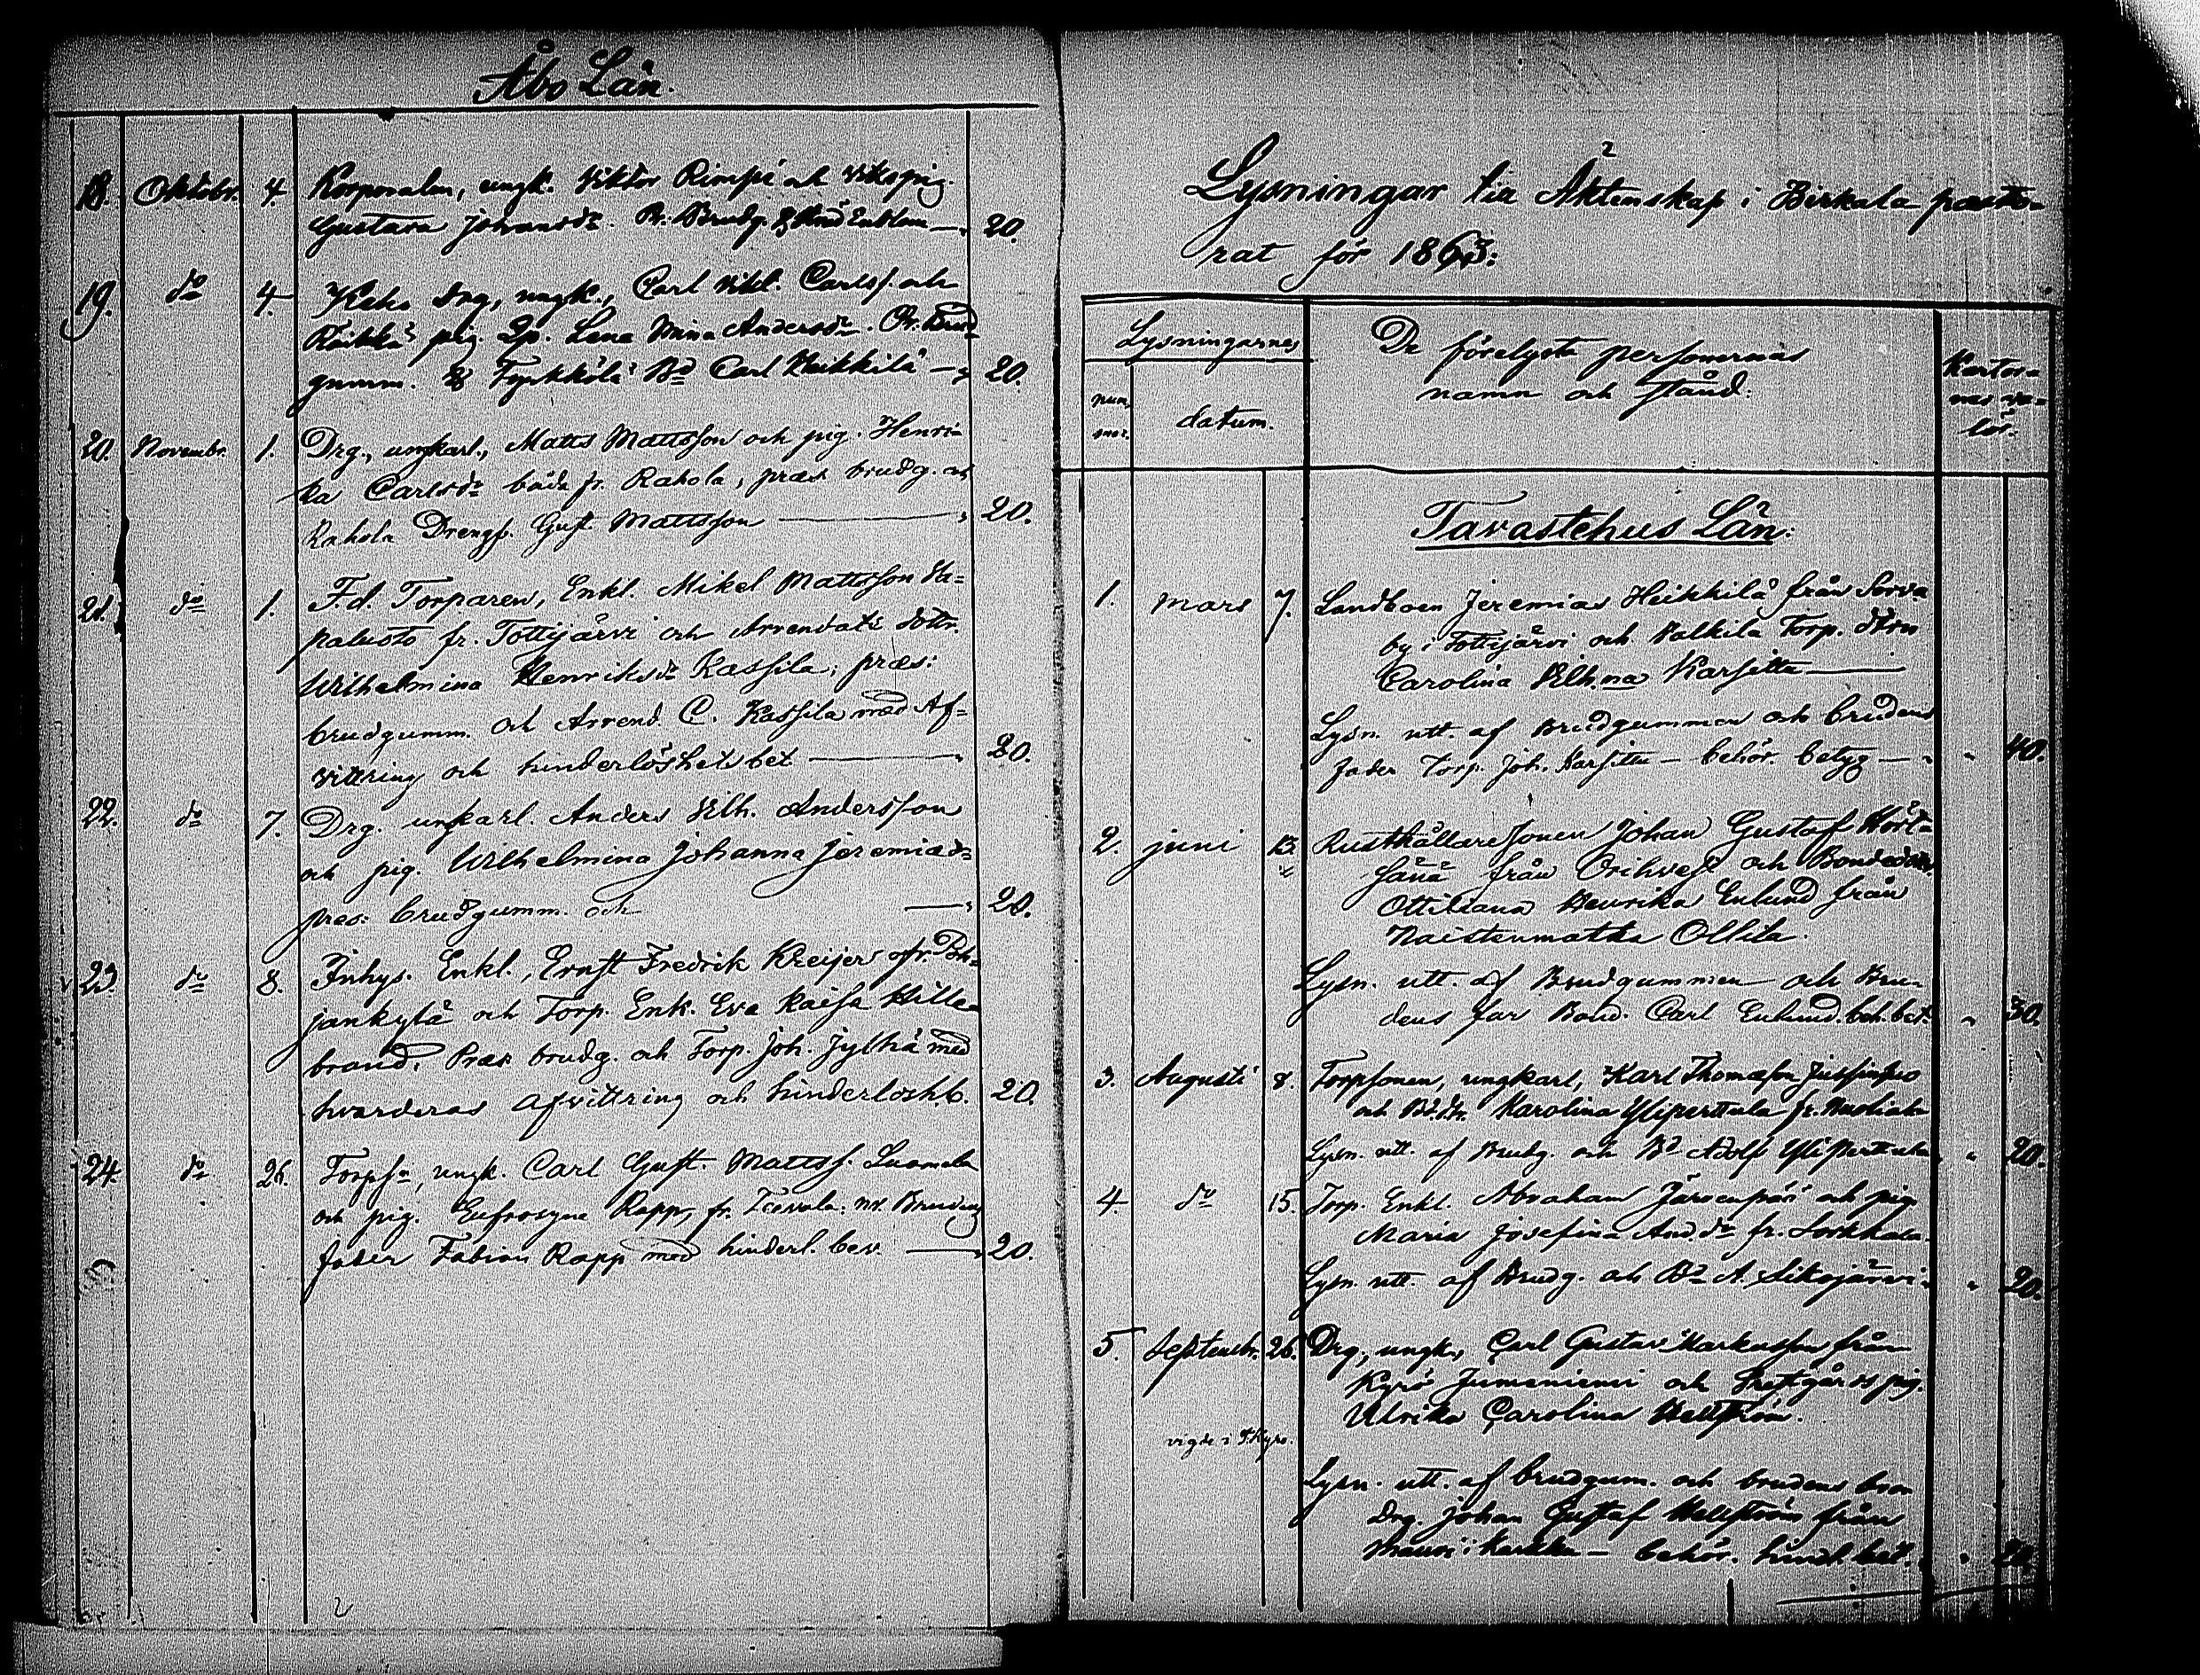 Åbo Län.
18. Oktobr. 4. Korporalen, ungk. Viktor Rimpi och Viks pig.
Gustava Johansdr. Pr. Brudg. 20.
19. do 4. Keho Drg, ungk., Carl Vilh. Carlss. och
pig. Lena Mina Andersdr. Pr. Brud-
gumm. & Tyrkkölä Bd Carl Heikkilä — 20.
20. Novembr. 1. Drg., ungkarl., Matts Mattsson och pig. Henri-
ka Carlsdr båda fr. Rahola, præs brudg. och
Rahola Drengs. Gust. Mattsson — 20.
21. do 1. F.d. Torparen, Enkl. Mikel Mattsson Ha-
palusto fr. Tottijärvi och Arrendats dottr.
Wilhelmina Henriksdr Kassila, præs:
brudgumm. och Arrend. C. Kassila med Af-
vittring och hinderlöshetsbet — 20.
22. do 7. Drg. ungkarl. Anders Vilh. Andersson
och pig. Wilhelmina Johanna Jeremiædr
pres: brudgumm. och — 20.
23. do 8. Inhys. Enkl., Ernst Fredrik Kreijer fr. Poh-
jankylä och Torp. Enk. Eva Kaisa Hille-
brand. Præs brudg. och Torp. Joh. Jylhä med
hvarderas afvittring och hinderlösh.b. 20.
24. do 26. Torps., ungk. Carl Gust. Mattss. Luomala
och pig. Eufrosyne Rapp, fr. Brudens
fader Fabian Rapp med hinderl. bev. — 20.
Lysningar till Äktenskap i Birkala pasto-
rat för 1863:
Lysningarnes
num-
mer.
datum.
De förelysta personernas
namn och stånd:
Kartor-
nas va-
lör.
Tavastehus Län:
1. Mars 7. Landboen Jeremias Heikkilä från Sorva
by i Tottijärvi och Valkila Torp. dtrn
Carolina Vilh.na Karsitta —
Lysn. utt. af Brudgummen och brudens
fader Torp. Joh. Karsitta — behör. betyg — " 40.
2. Juni 13. Rusthållaresonen Johan Gustaf Hört-
sänä från Orihvesi och Bondedottr.
Ottiliana Henrika Enlund från
Naistenmatka Ollila.
Lysn. utt. af Brudgummen och Bru-
dens far Bond. Carl Enlund. beh. bet. " 30.
3. Augusti 8. Torpsonen, ungkarl, Karl Thomasson
och Bd.dtr. Karolina Ylipertula fr.
Lysn. utt. af Brudg. och Bd Adolf Ylipertula " 20.
4. do 15. Torp. Enkl. Abraham Järvenpää och pig.
Maria Josefina And.dr fr. Sorkkala.
Lysn. utt. af Brudg. och Bd A. Sikojärvi " 20.
5. Septembr. 26. Drg., ungk., Carl Gustav Markusson från
Kyrö Jumeniemi och Prestgårds pig.
Ulrika Carolina Hellström.
vigde i T.Kyro.
Lysn. utt. af brudgum. och brudens bror
Drg. Johan Gustaf Hellström från
— behör. hindl. bet. " 20.